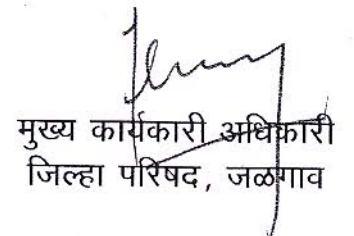 मुख्य कार्यकारी अधिकारी
जिल्हा परिषद, जळगाव